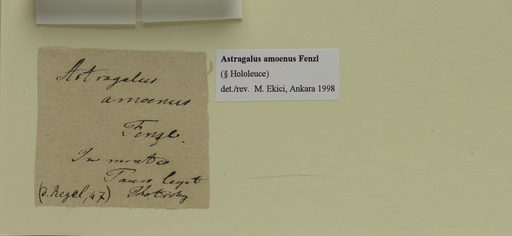 Astragalus
amoenus
Fenzl.
In monte
Tauro legit
Kotschy
(d. Regel, 47)
Astragalus amoenus Fenzl
(§ Hololeuce)
det./rev. M. Ekici, Ankara 1998